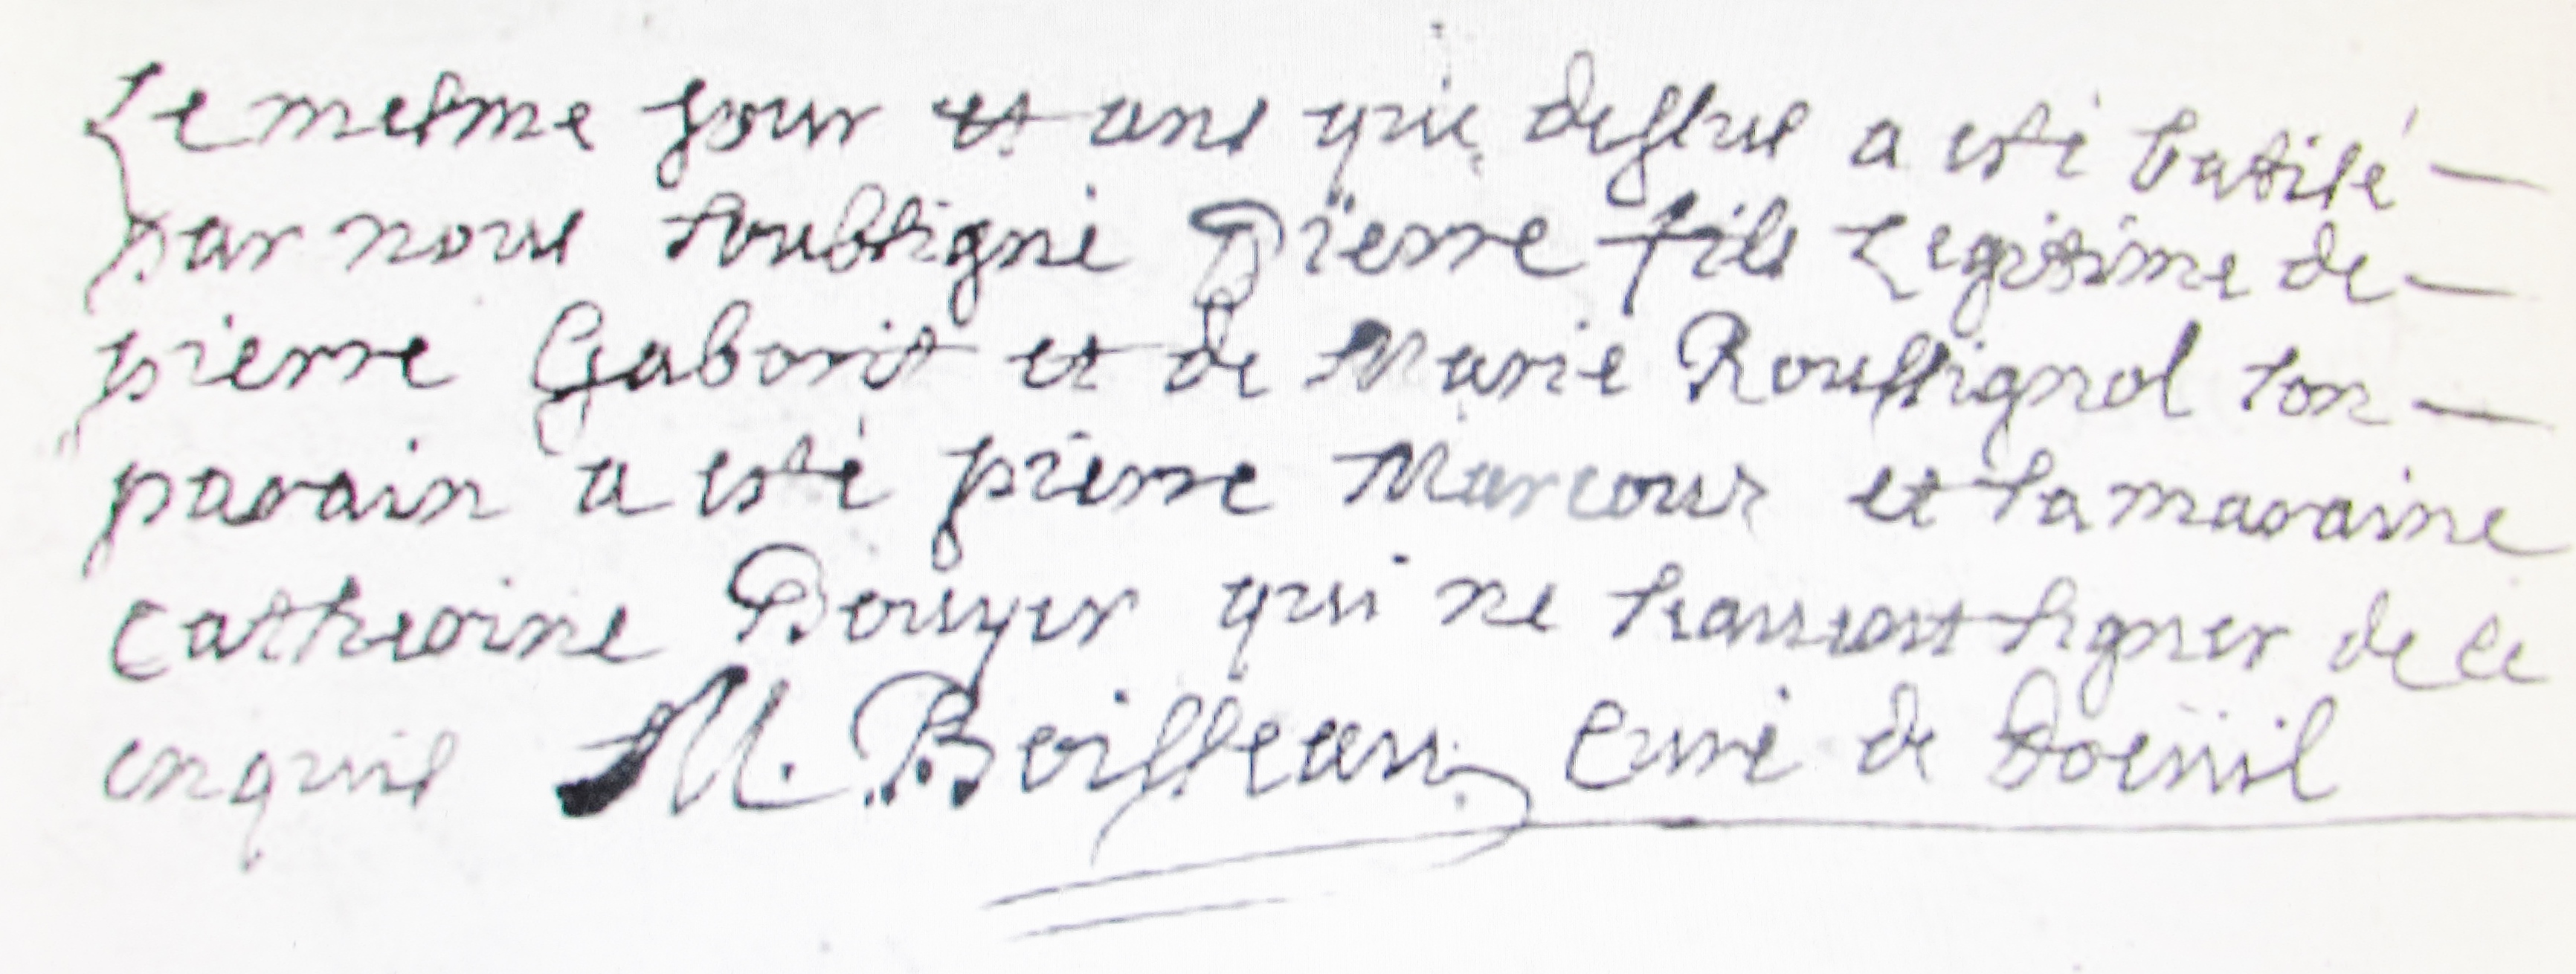 Le mesme jour et ans que dessus a esté batisé
par nous soubsigné Pierre fils Legitime de
pierre Gaborit et de Marie Roussignol son
parain a esté pierre Marcour et sa maraine
catherine Bouyer qui ne scavent signer de ce
enquis M. Boisseau Curé de doeuil